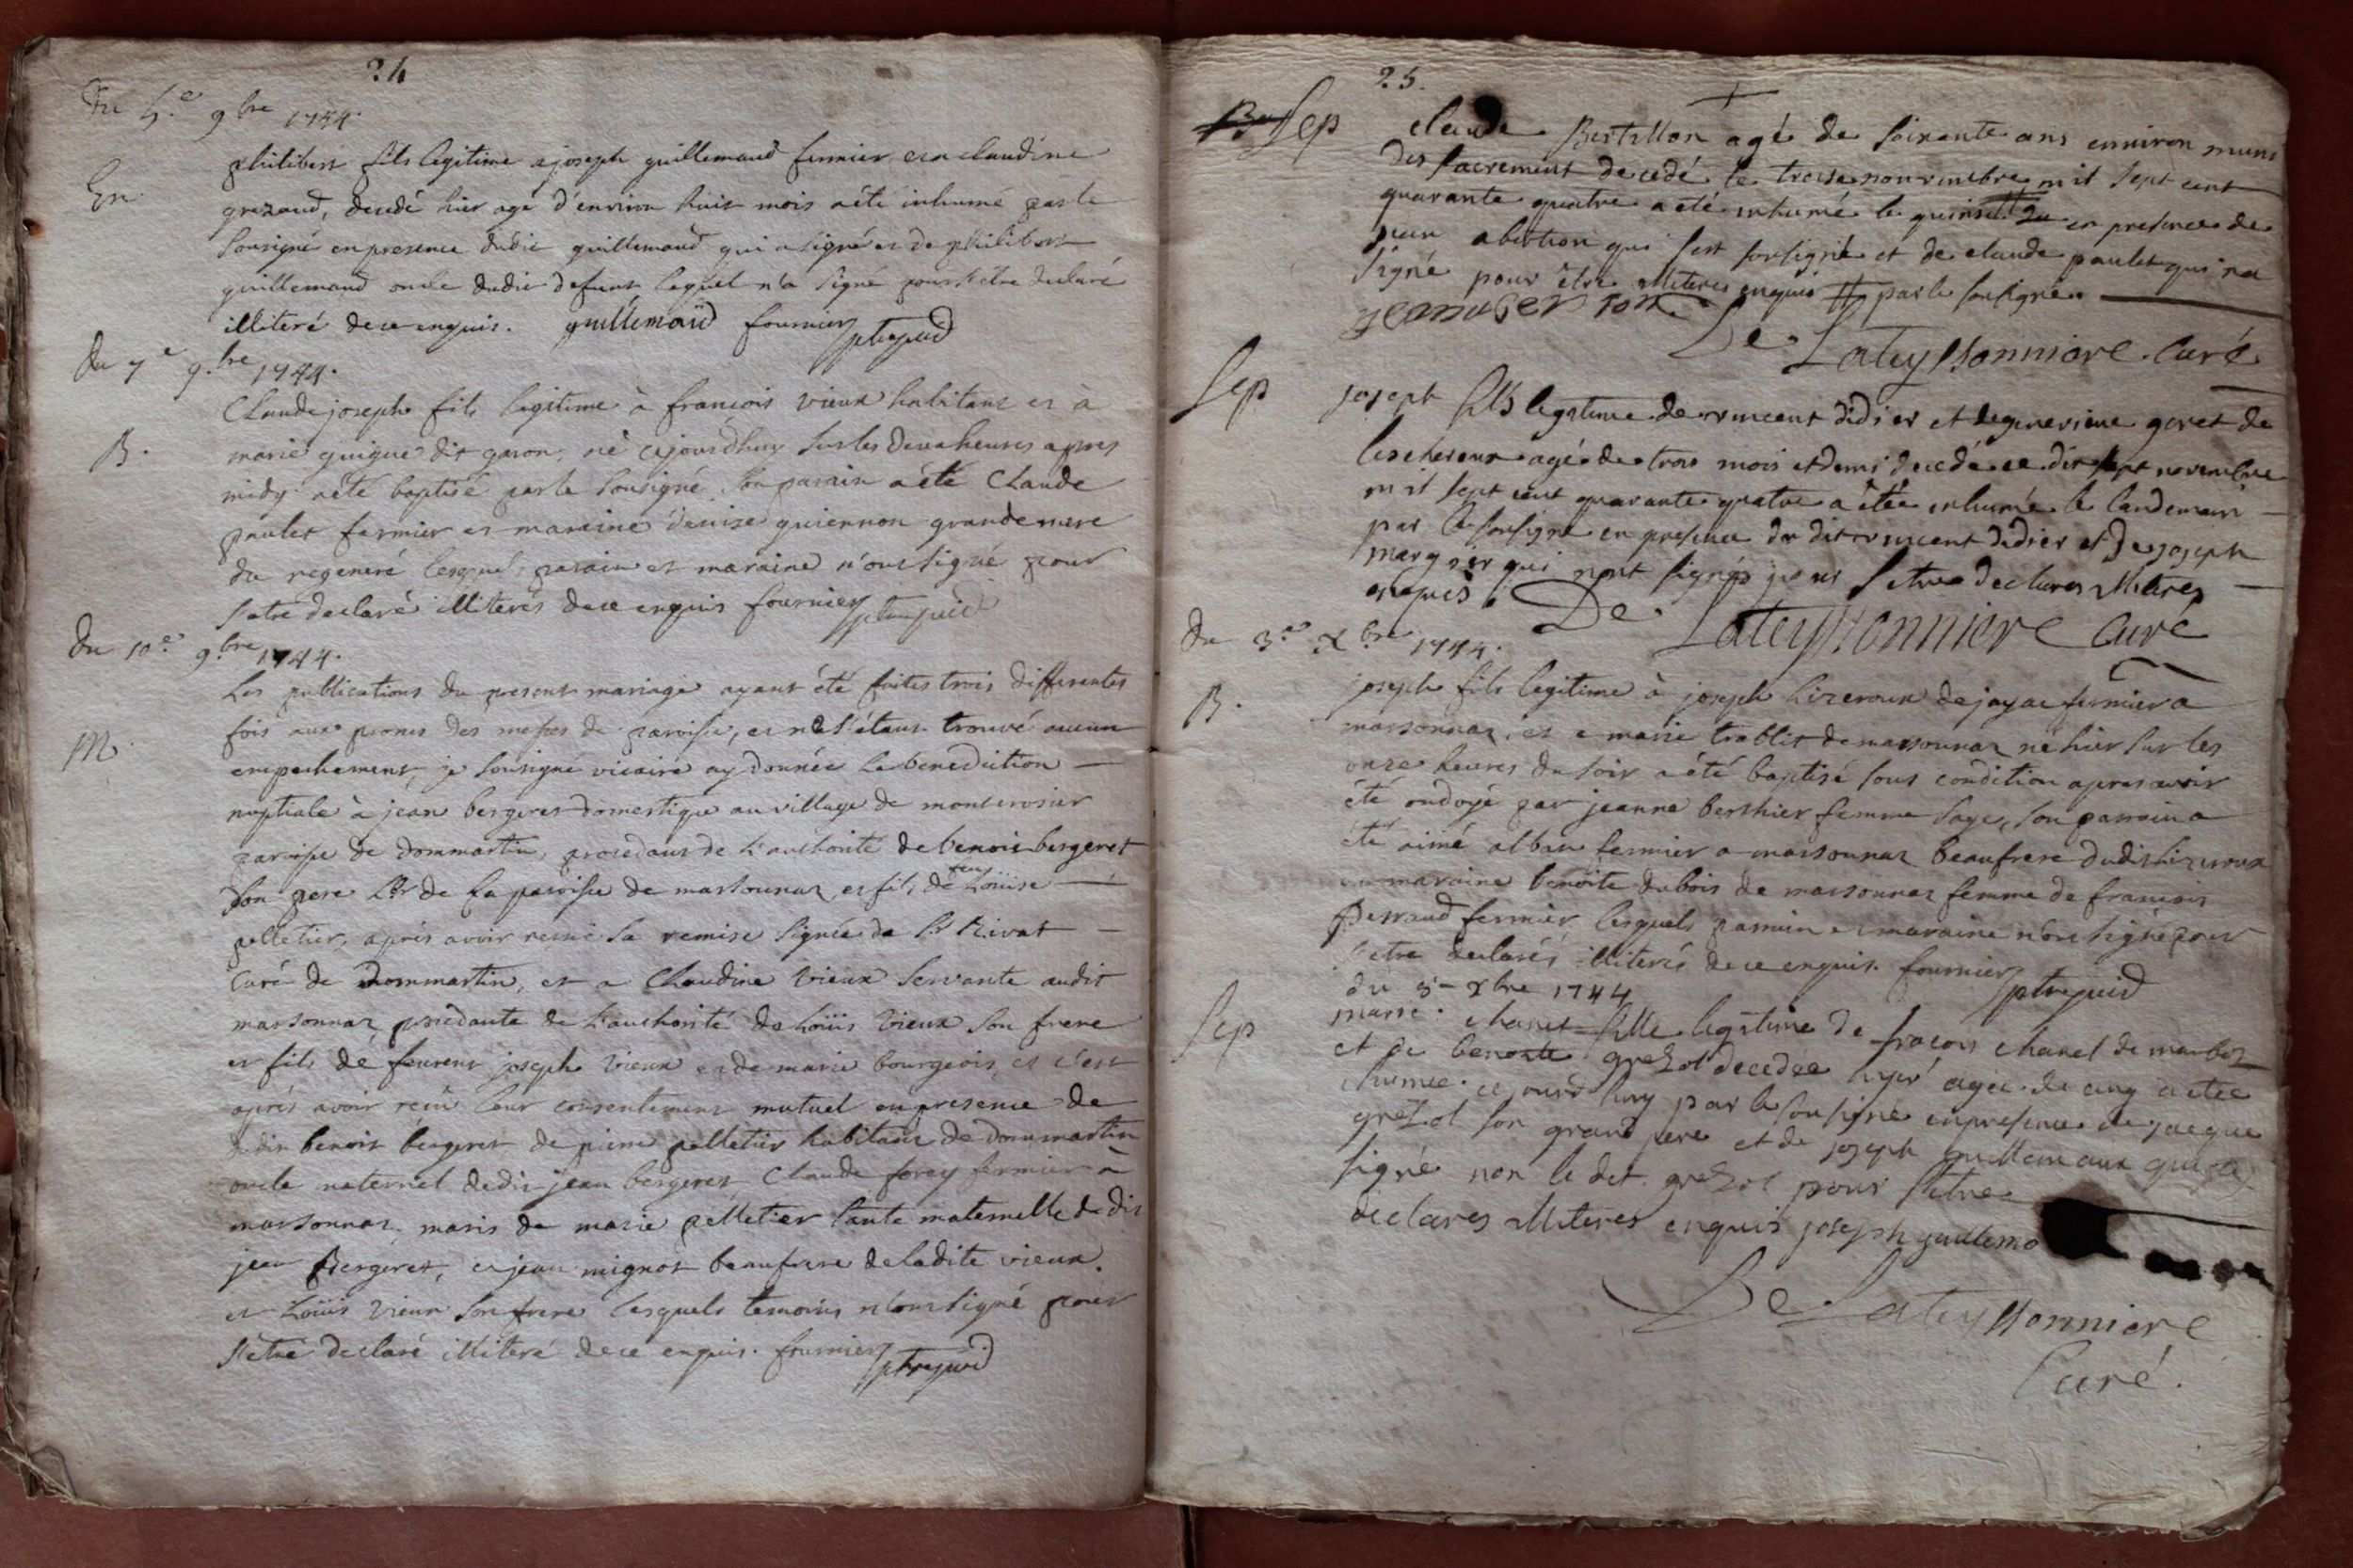 24
Du 5.e 9bre 1744.
En
philibert fils legitime a joseph guillemaud fermier et a claudine
grezaud, decedé hier agé d'environ huit mois a été inhumé par le
sousigné en presence dudit guillemaud qui a signé et de philibert
guillemaud oncle dudit defunt lequel n'a signé pour s'etre declaré
illiteré de ce enquis. guillemaud fournier
Du 7e 9.bre 1744.
B.
Claude joseph fils legitime à francois vieux habitant et à
marie guigue dit garon, né cejourdhuy sur les deux heures apres
midy a été baptisé par le sousigné son parain a été Claude
paulet fermier et maraine denise guiennon grande mere
du regeneré lesquels parain et maraine n'ont signé pour
s'etre declaré illiterés de ce enquis fournier
Du 10.e 9.bre 1744.
M.
Les publications du present mariage ayant été faites trois differentes
fois aux prones des messes de paroisse, et ne s'étant trouvé aucun
empechement, je sousigné vicaire ay donnée la benediction
nuptiale à jean bergeret domestique au village de montcrosier
paroisse de dommartin, procedant de l'authorité de benoit bergeret
son pere de la paroisse de massonnaz et fils de feu Loüise
pelletier, après avoir receu la remise signée de Sr Rivat
curé de Dommartin, et a Claudine vieux servante audit
massonnaz procedante de l'authorité de Loüis vieux son frere
et fils de feurent joseph vieux et de marie bourgeois, et c'est
aprés avoir reçû leur consentement mutuel en presence de
dudit benoit bergeret de pierre pelletier habitant de dommartin
oncle maternel dudit jean bergeret, Claude forey fermier à
massonnaz, maris de marie pelletier tante maternelle dudit
jean Bergeret, et jean mignot beaufrere de ladite vieux.
et Loüis vieux son frere lesquels temoins n'ont signé pour
s'etre declaré illiteré de ce enquis. fournier
25.
Sep
claude Bertillon agé de soixante ans environ muni
des sacrement decedé le treise nouvembre mil sept cent
quarante quatre a eté inhumé le en presence de
jean qui s'est sousigné et de claude paulet qui na
signé pour être illiteres enquis # par le sousigné
De Lateyssonniere. Curé
Sep
joseph fils legitime de vincent didier et de genevieve goret de
lescheroux agé de trois mois et demi decedé ce dix sept novembre
mil sept cent quarante quatre a étée inhumé le landemain
par le sousigné en presence du dit vincent didier et de joseph
margoer qui n'ont signés pour s'etre declares illiteres
enquis. De Lateyssonniere Curé
Du 3.e Xbre 1744.
B.
joseph fils legitime à joseph Lizeroux de jayac fermier a
massonnaz, et a marie trablit de massonnaz né hier sur les
onze heures du soir a été baptisé sous condition apres avoir
été ondoyé par jeanne berthier femme sage, son parrain a
été aimé alban fermier a massonnaz beaufrere dudit Lizeroux
maraine benoite dubois de massonnaz femme de francois
Perraud fermier lesquels parrain et maraine n'ont signé pour
s'etre declarés illiterés de ce enquis. fournier
du 5 - Xbre 1744
Sep
marie. chanet fille legitime de fracois chanel de marboz
et de benoite grezot decedee hyer agee de cinq a etee
ihumee ce jourd huy par le sousigné en presence de jacque
grezot son grand pere et de joseph guillemaux qui a
signé non le dit grezot pour s'etre
declares illiteres enquis joseph guillemo
De Lateyssonniere
Curé.